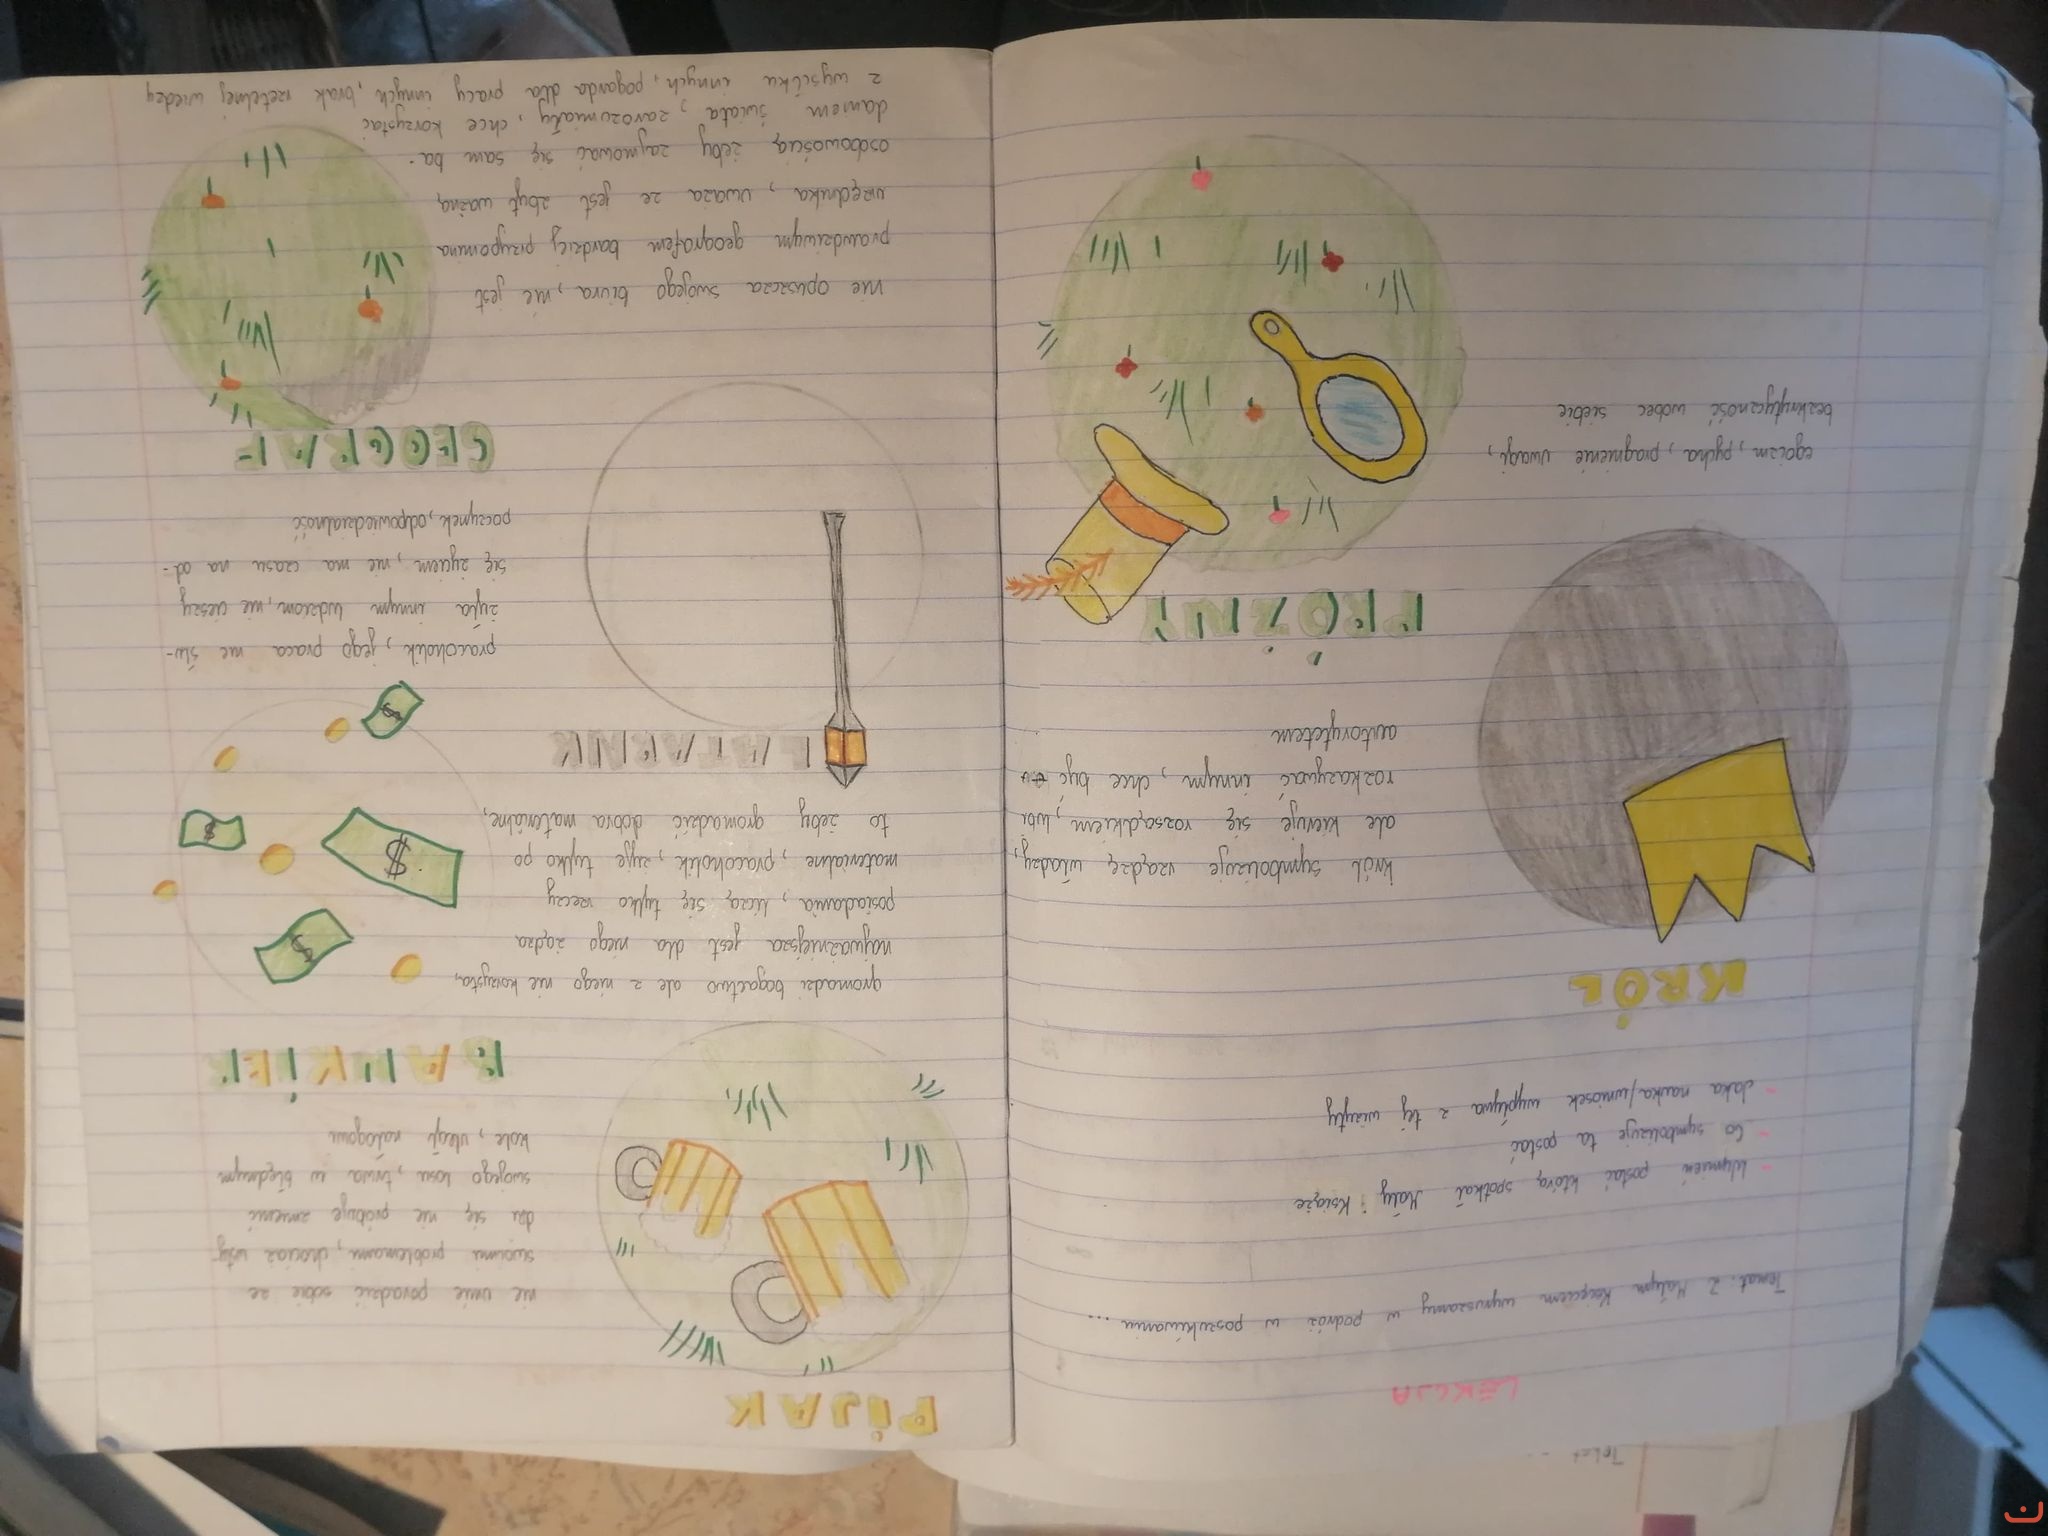 LEKCJA
Temat: Z Małym Księciem wyruszamy w podróż w poszukiwaniu ...
- Wymień postać którą spotkał Mały Książe
- Co symbolizuje ta postać
- Jaka nauka/wniosek wypływa z tej wizyty
KRÓL
król symbolizuje rządzę władzy,
ale kieruje się rozsądkiem, lubi
rozkazywać innym, chce być
autorytetem
PRÓŻNY
egoizm, pycha, pragnienie uwagi,
bezkrytyczność wobec siebie
PIJAK
nie umie poradzić sobie ze
swoimi problemami, chociaż wsty-
dzi się nie próbuje zmienić
swojego losu, trwa w błędnym
kole, uległ nałogowi
BANKIER
gromadzi bogactwo ale z niego nie korzysta,
najważniejsza jest dla niego żądza
posiadania, liczą się tylko rzeczy
materialne, pracoholik, żyje tylko po
to żeby gromadzić dobra materialne,
$
$
$
$
LATARNIK
pracoholik, jego praca nie słu-
żyła innym ludziom, nie cieszy
się życiem, nie ma czasu na od-
poczynek, odpowiedzialność
GEOGRAF
nie opuszcza swojego biura, nie jest
prawdziwym geografem bardziej przypomina
urzędnika, uważa ze jest zbyt ważną
osobowością żeby zajmować się sam ba-
daniem świata, zarozumiały, chce korzystać
z wysiłku innych, pogarda dla pracy innych, brak rzetelnej wiedzy
Temat